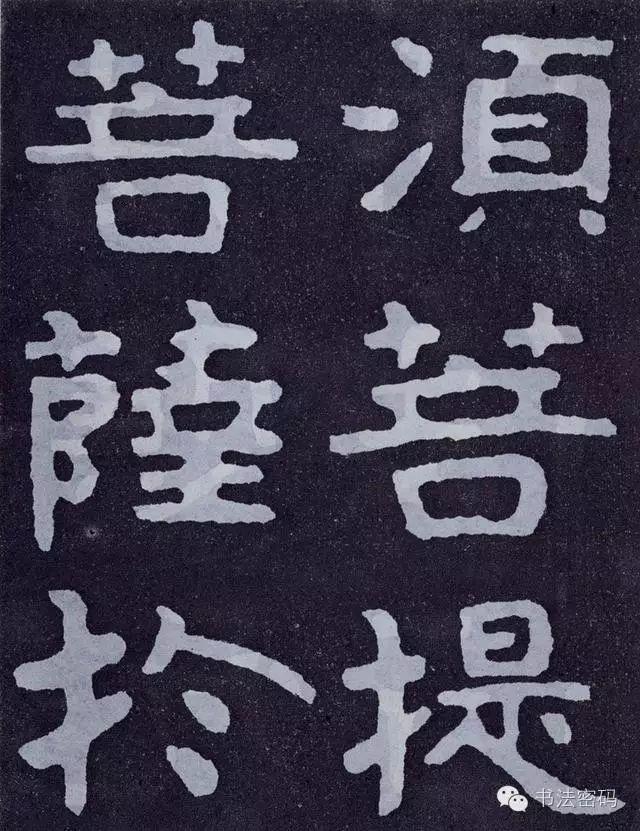 湏菩提
菩薩扵
书法密码